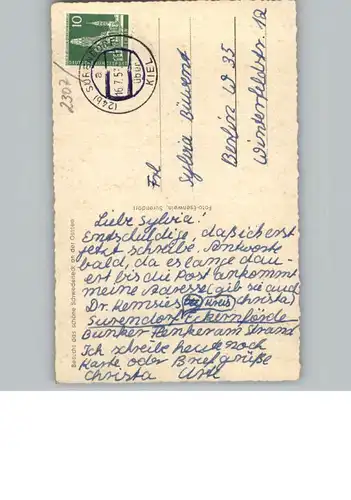 10
(24b) SURENDORF
a
16.7.57
über
KIEL
2307/
Frl
Sylvia
Berlin W 35
Winterfeldstr. 12
Foto-Esenwein, Surendorf
Besucht das schöne Schwedeneck an der Ostsee
Liebe Sylvia!
Entschuldige, daß ich erst
jetzt schreibe. Antworte
bald, da es lange dau-
ert bis die Post ankommt
meine Adresse (gib sie auch
Dr. Remsies und Christa)
Surendorf Eckernförde
Bunker am Strand
Ich schreibe heute noch
Karte oder Brief grüße
Christa